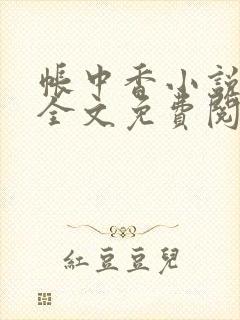 帳中香小説
全文免費閱
紅豆豆兒